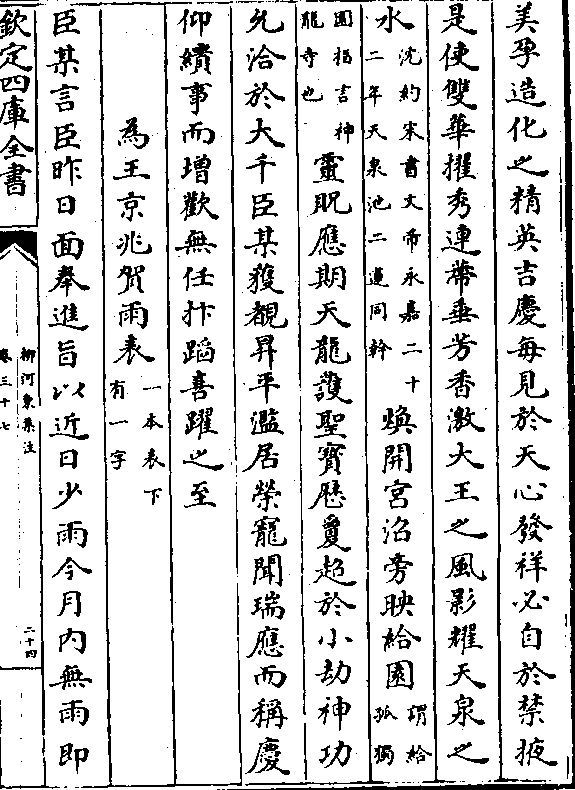 美孕造化之精英吉慶每見於天心發祥必自於禁掖
是使雙華擢秀連蔕垂芳香激大王之風影耀天泉之
水沈約宋書文帝永嘉二十二年天泉池二蓮同幹煥開宮沼旁映給園謂給孤獨
園指言神龍寺也靈貺應期天龍護聖寳厯夐超於小劫神功
允洽於大千臣某獲覩昇平濫居榮寵聞瑞應而稱慶
仰繢事而增歡無任抃蹈喜躍之至
為王京兆賀雨表一本表下有一字
臣某言臣昨日面奉進旨以近日少雨今月内無雨即
欽定四庫全書
柳河東集注
卷三十七
二十四